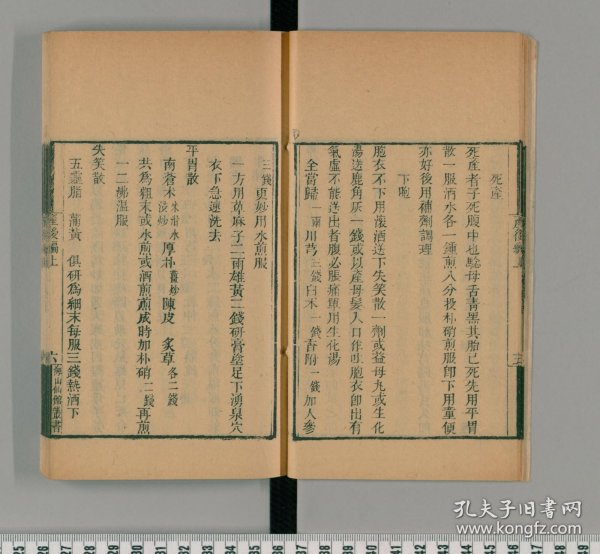 死產
死產者子死腹中也驗母舌青黑其胎已死先用平胃
散一服酒水各一鍾煎八分投朴硝煎服即下用童便
亦好後用補劑調理
下胞
胞衣不下用滾酒送下失笑散一劑或益母丸或生化
湯送鹿角灰一錢或以產母髮入口作吐胞衣即出有
氣虛不能送出者腹必脹痛單用生化湯
全當歸一兩川芎三錢白朮一錢香附一錢加人參
產後編上
三錢更妙用水煎服
一方用萆麻子二兩雄黃二錢研膏塗足下湧泉穴
衣下急速洗去
平胃散
南蒼朮米泔水浸炒厚朴薑炒陳皮 炙草各二錢
共為粗末或水煎或酒煎煎成時加朴硝二錢再煎
一二沸溫服
失笑散
五靈脂 蒲黃 俱研為細末每服三錢熱酒下
產後編上
六
海山仙館叢書
孔夫子旧书网
www.kongfz.com
25 26 27 28 29 30 31 32 33 34 35 36 37 38 39 40 41 42 43 44 45 46 47 48 49